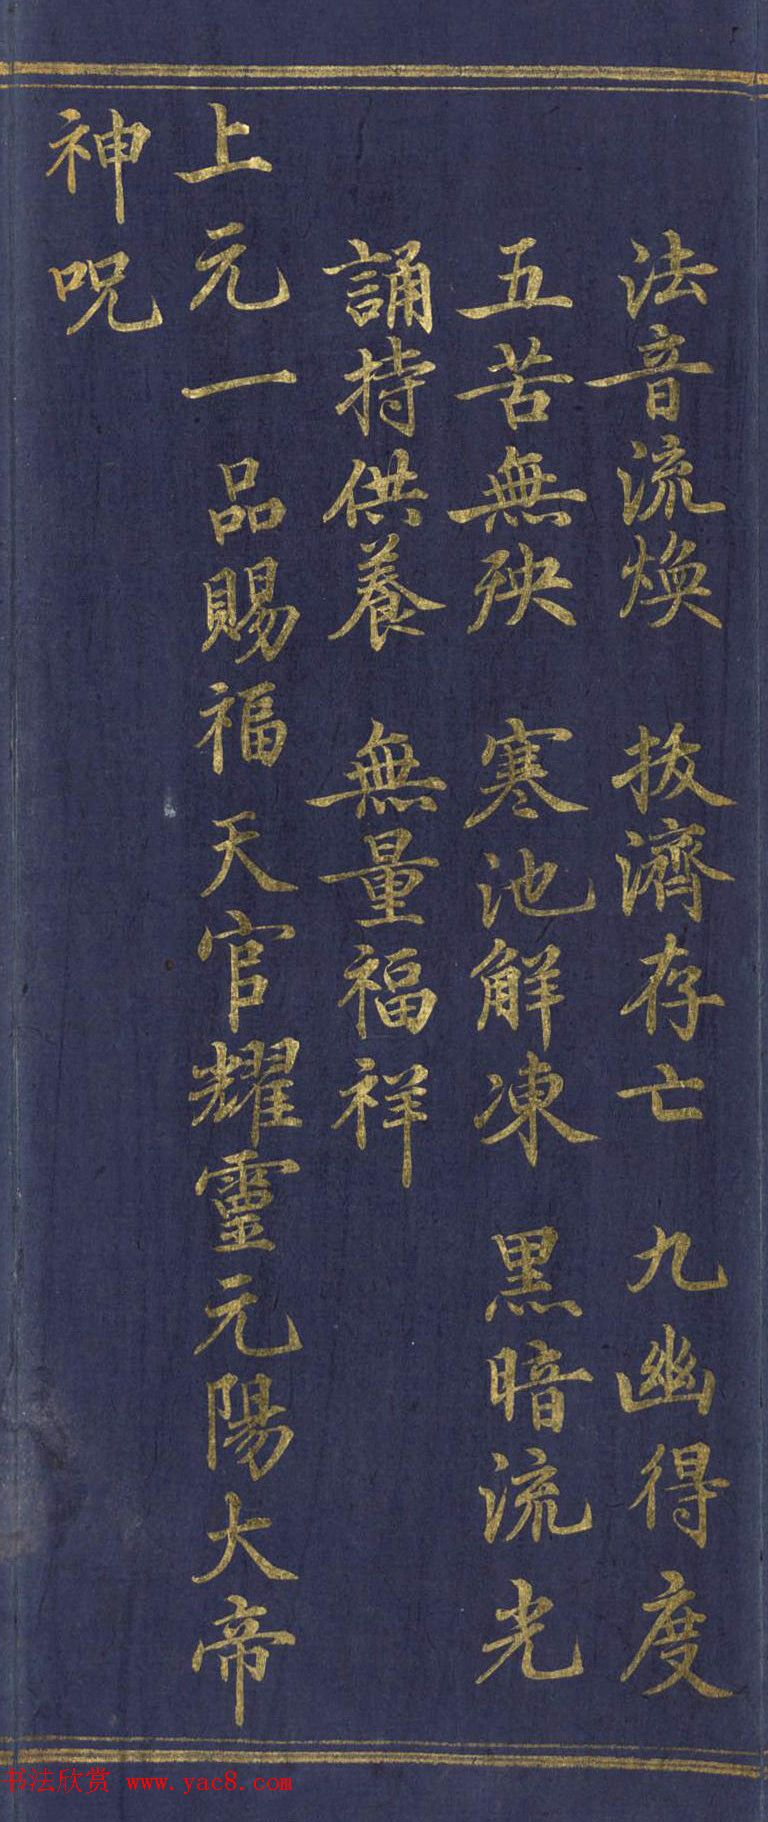 法音流煥 拔濟存亡 九幽得度
五苦無殃 寒池解凍 黑暗流光
誦持供養 無量福祥
上元一品賜福天官耀靈元陽大帝
神呪
书法欣赏 www.yac8.com